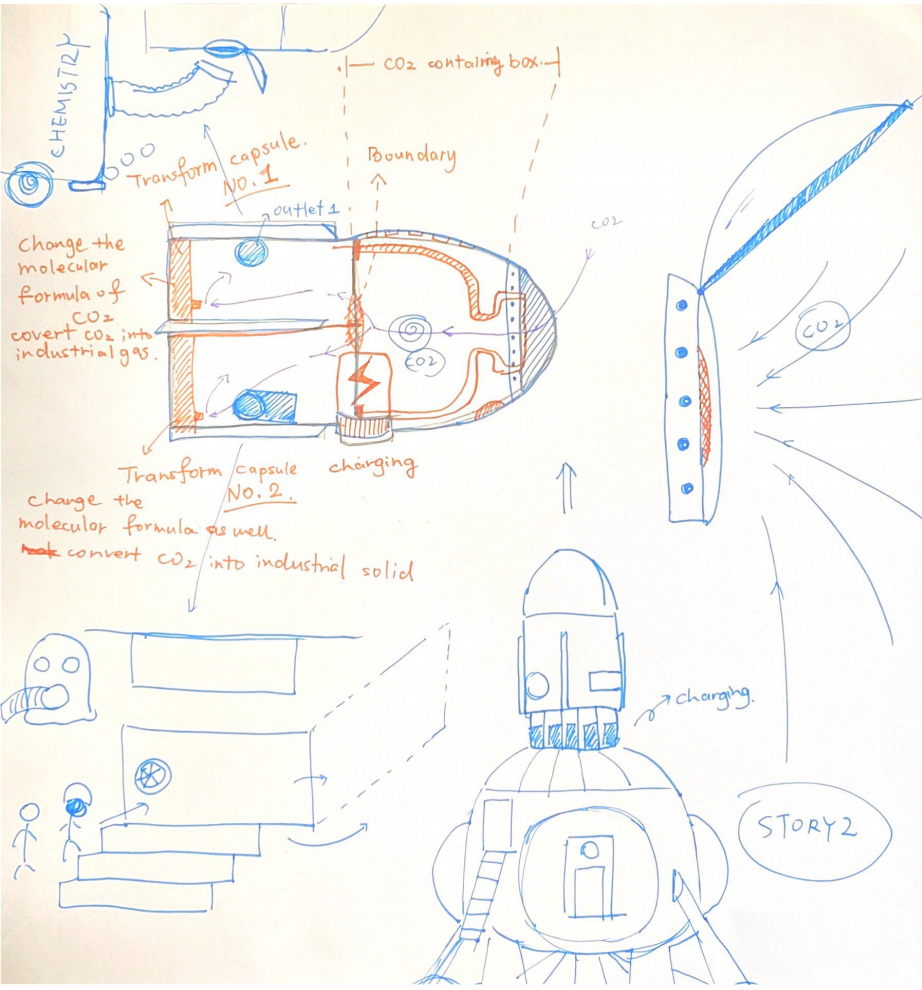 CHEMISTRY
CO2 containing box.
Transform capsule.
NO.1
Boundary
outlet 1
CO2
Change the
molecular
formula of
CO2
covert CO2 into
industrial gas.
CO2
CO2
Transform capsule
NO.2.
charging
change the
molecular formula as well.
convert CO2 into industrial solid
charging.
STORY2